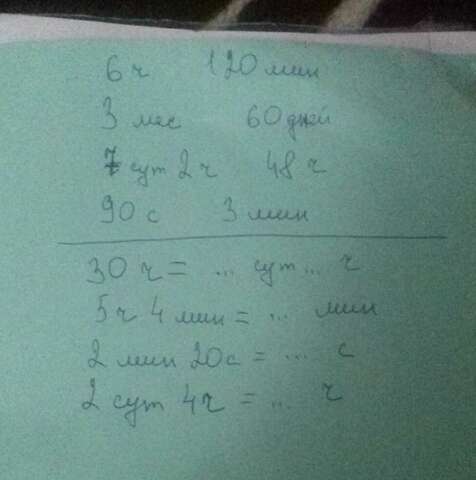 6 ч 120 мин
3 мес 60 дней
7 сут 2 ч 48 ч
90 с 3 мин
30 ч = ... сут ... ч
5 ч 4 мин = ... мин
2 мин 20 с = ... с
2 сут 4 ч = ... ч